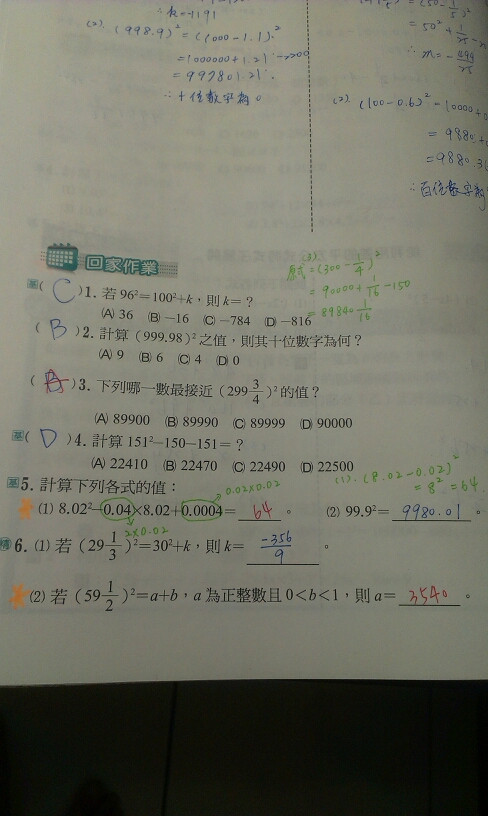 ∴k=-1191
(2). (998.9)² = (1000-1.1)²
= 1000000+1.21-2200
= 997801.21
∴十位數字為0
= (50-1/5)²
= 50²+1/25-
∴ m = -499/25
(2). (100-0.6)² = 10000+0
= 9880+0
= 9880.36
∴百位數字為
回家作業
(1)
原式=(300-1/4)²
= 90000+1/16-150
= 89840 1/16
基( C )1. 若 96²=100²+k,則k=?
(A) 36 (B) -16 (C) -784 (D) -816
( B )2. 計算 (999.98)² 之值,則其十位數字為何?
(A) 9 (B) 6 (C) 4 (D) 0
( A )3. 下列哪一數最接近 (299 3/4)² 的值?
(A) 89900 (B) 89990 (C) 89999 (D) 90000
基( D )4. 計算 151²-150-151=?
(A) 22410 (B) 22470 (C) 22490 (D) 22500
基5. 計算下列各式的值:
0.02×0.02
(1). (8.02-0.02)²
= 8² = 64
(1) 8.02²-0.04×8.02+0.0004= 64 。 (2) 99.9²= 9980.01 。
2×0.02
精6. (1) 若 (29 1/3)²=30²+k,則k= -356/9 。
(2) 若 (59 1/2)²=a+b,a 為正整數且 0<b<1,則a= 3540 。